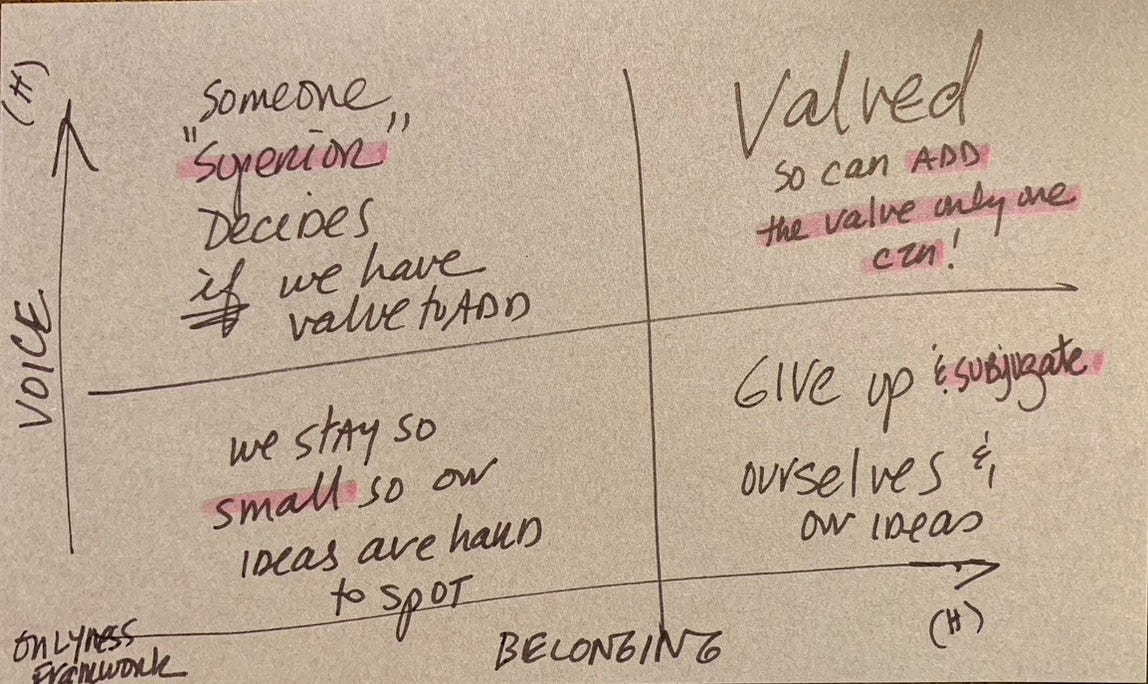 (H)
VOICE
Someone
"Superior"
Decides
if we have
value to ADD
Valued
so can ADD
the value only one
can!
we stay so
small so our
ideas are hard
to spot
Give up & subjugate
ourselves &
our ideas
(H)
BELONGING
Onlyness
Framework